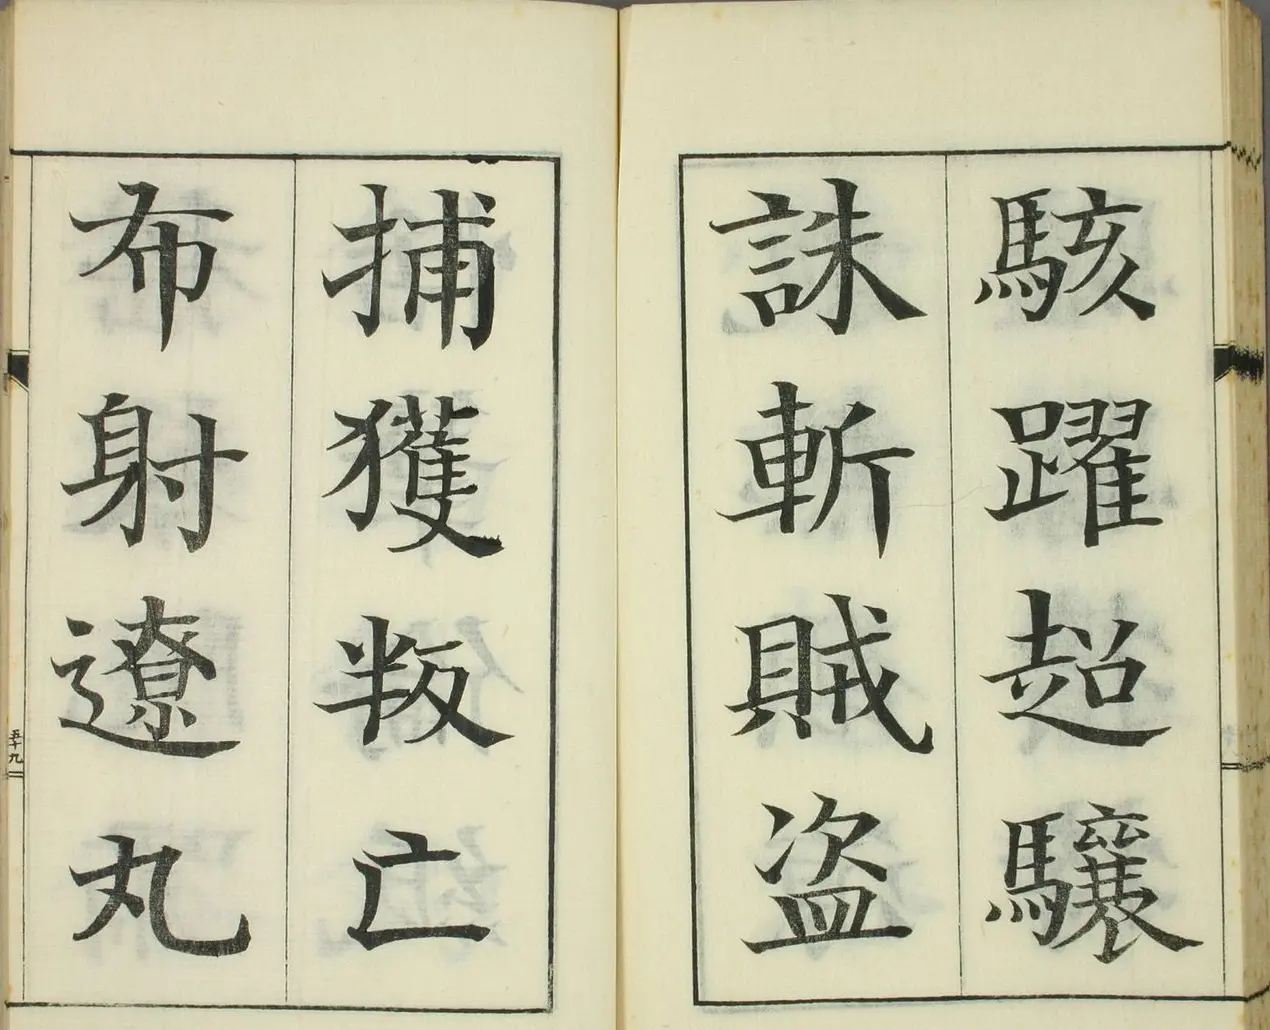 駭躍超驤
誅斬賊盗
捕獲叛亡
布射遼丸
五十九